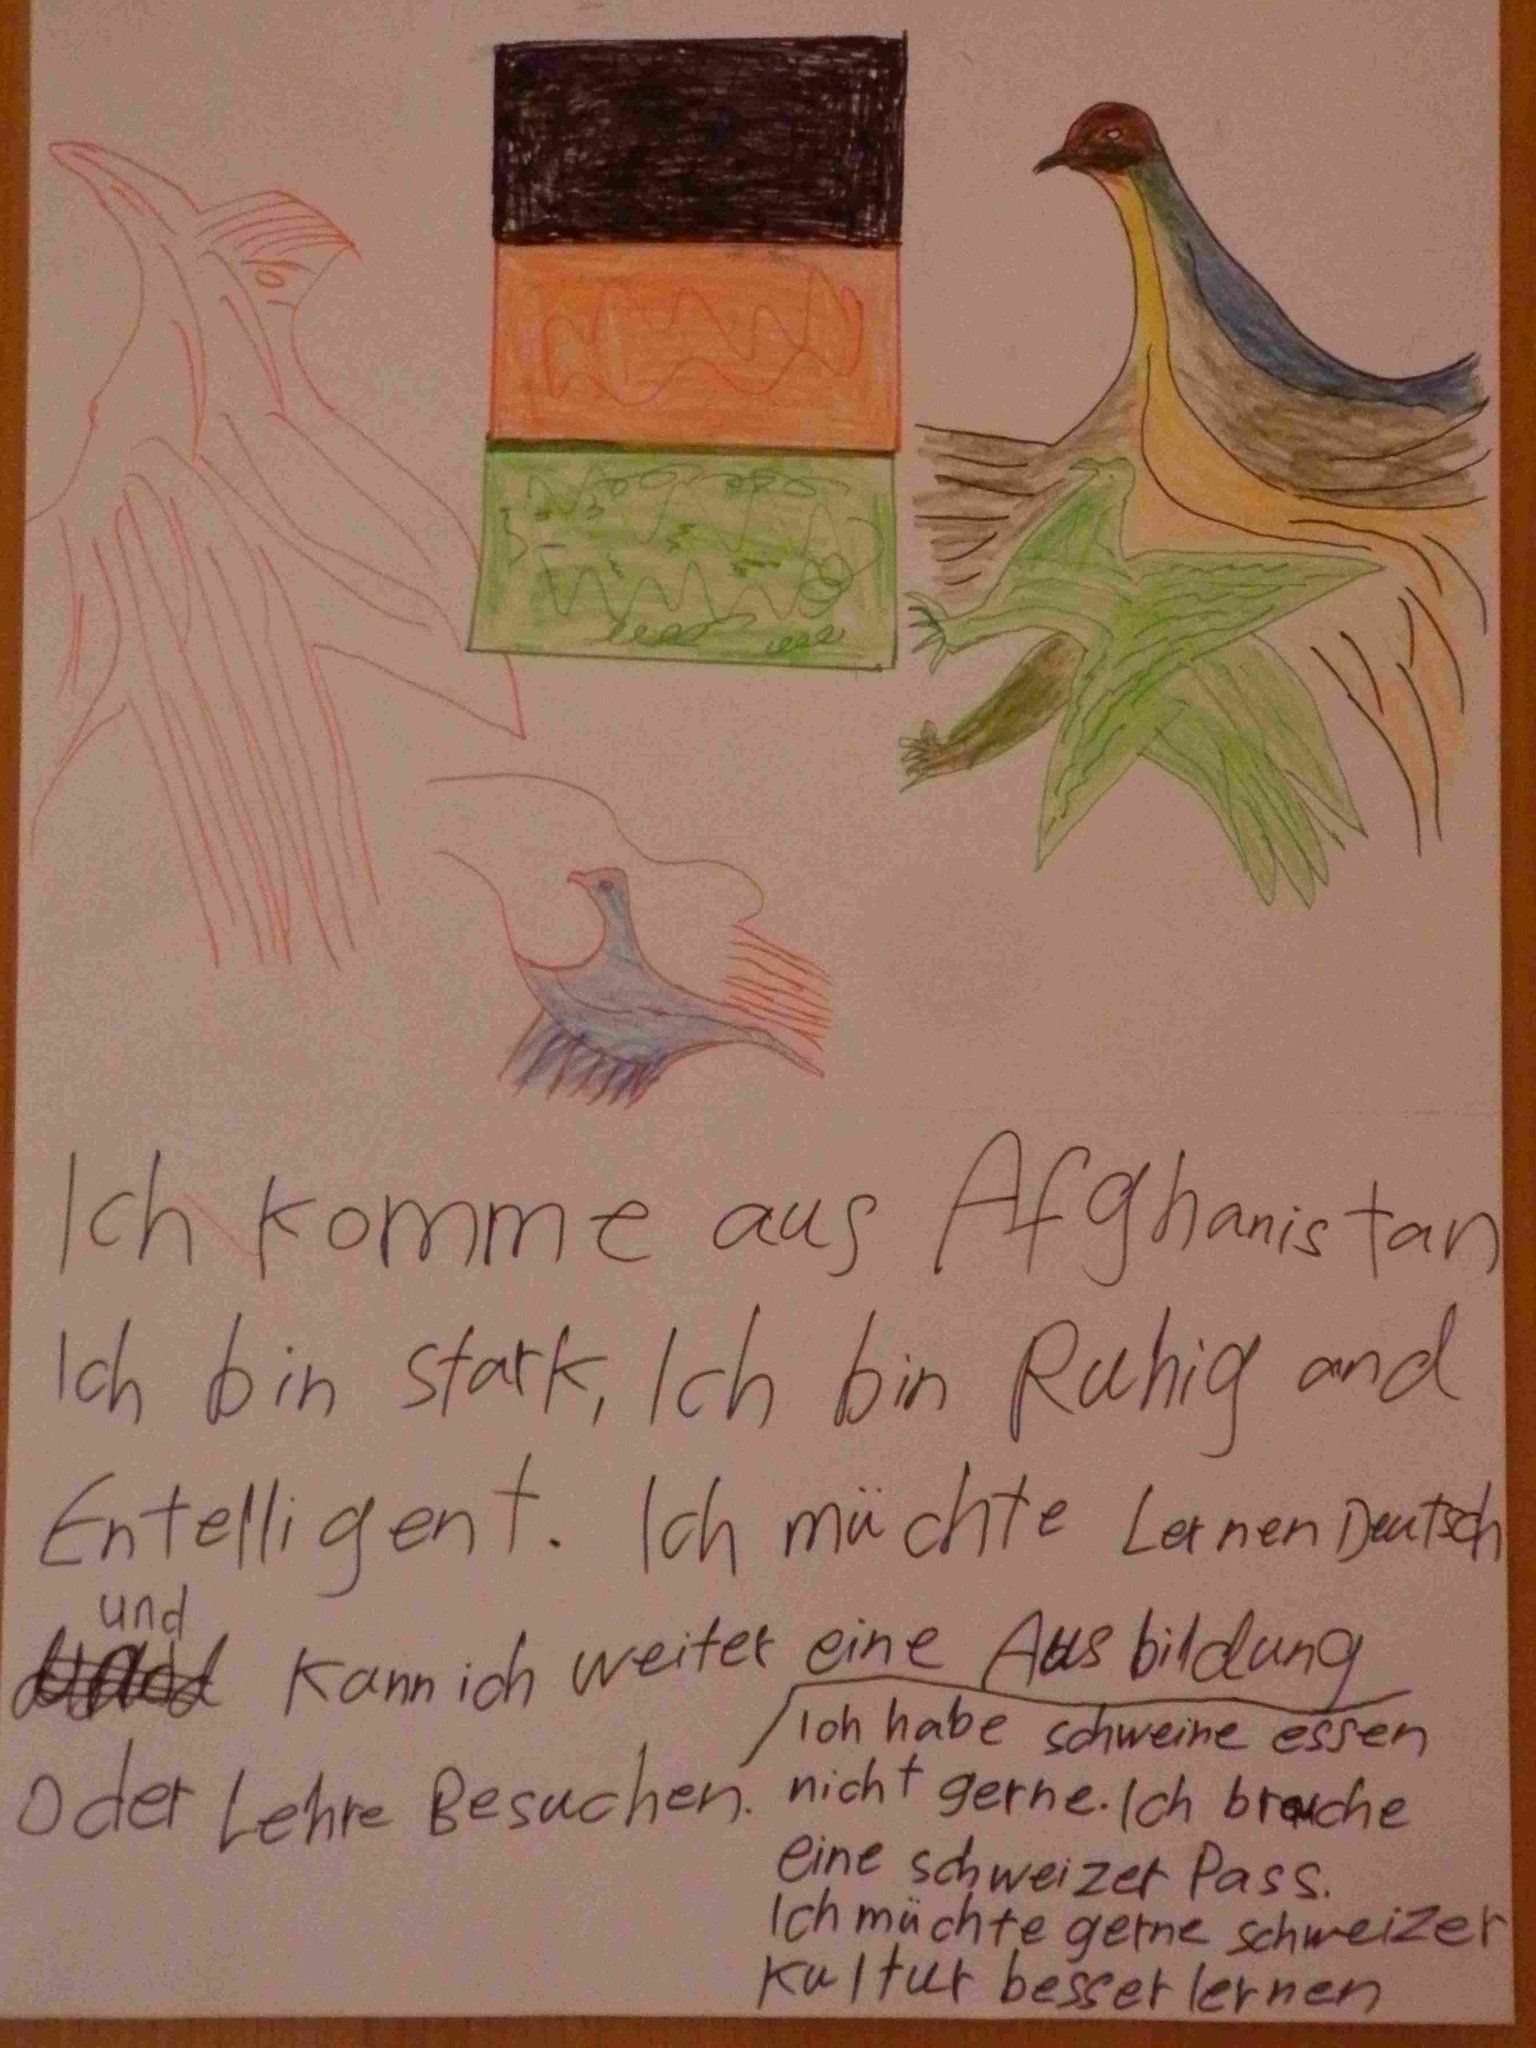 Ich komme aus Afghanistan
Ich bin stark, Ich bin Ruhig and
Entelligent. Ich müchte Lernen Deutsch
und
kann ich weiter eine Ausbildung
Oder Lehre Besuchen.
Ich habe schweine essen
nicht gerne. Ich brauche
eine schweizer Pass.
Ich müchte gerne schweizer
kultur besser lernen